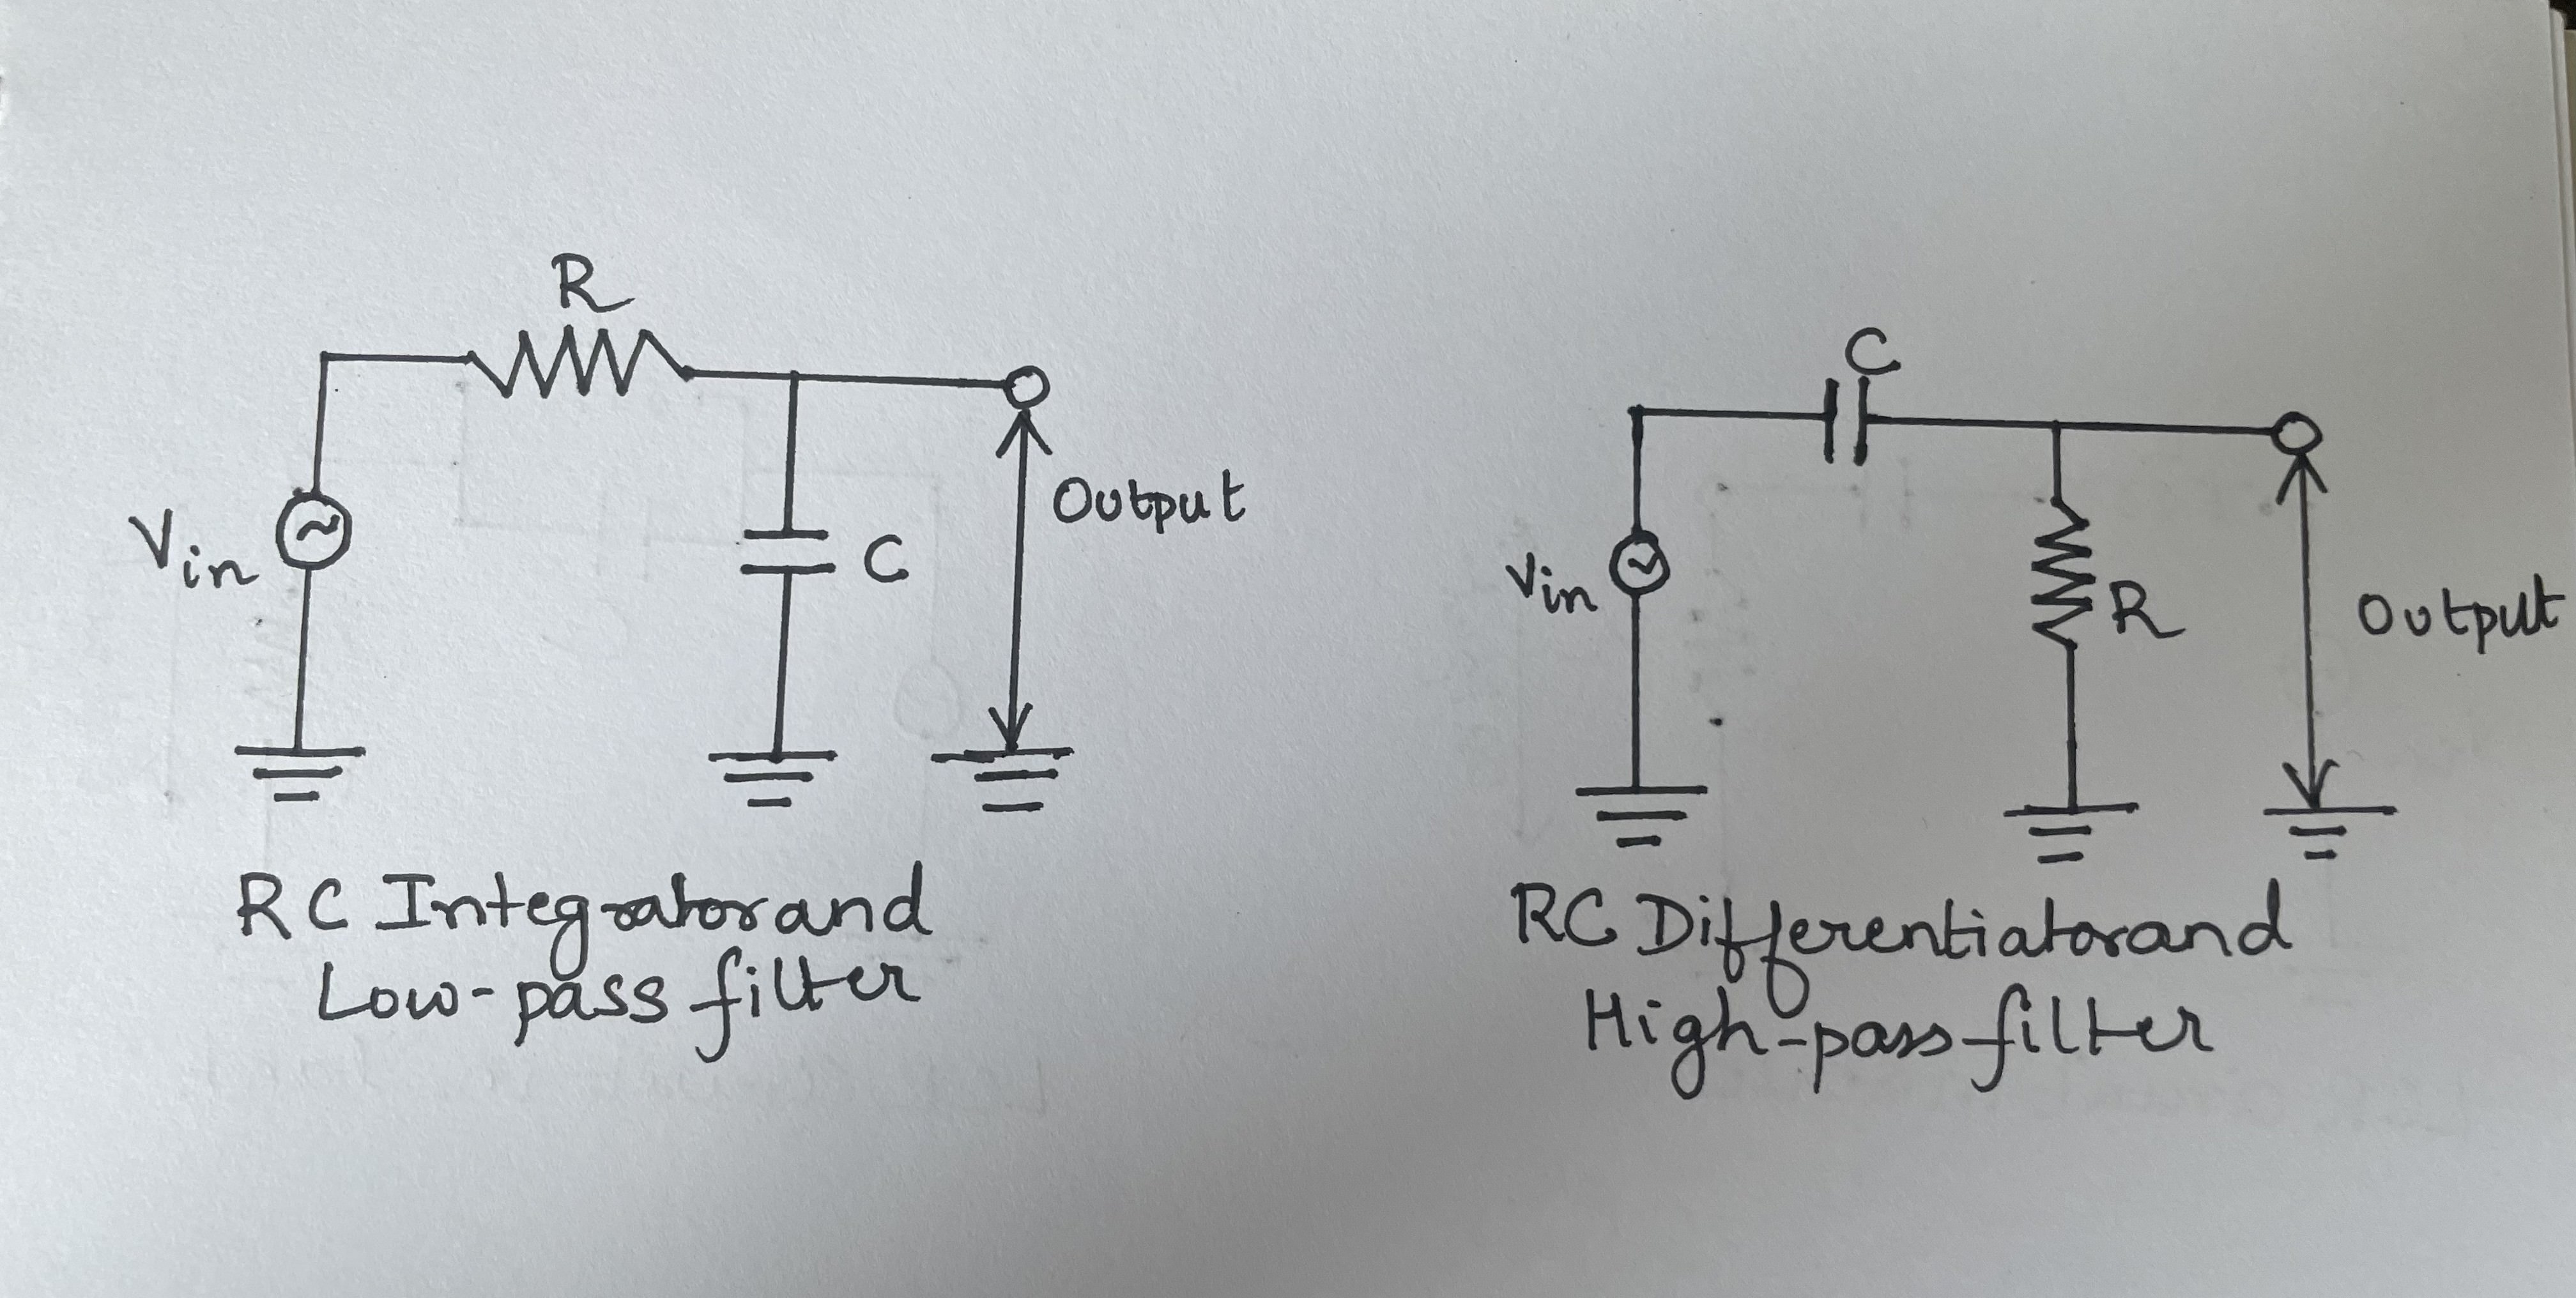 R
Vin
C
Output
RC Integrator and
Low-pass filter
C
Vin
R
Output
RC Differentiator and
High-pass filter